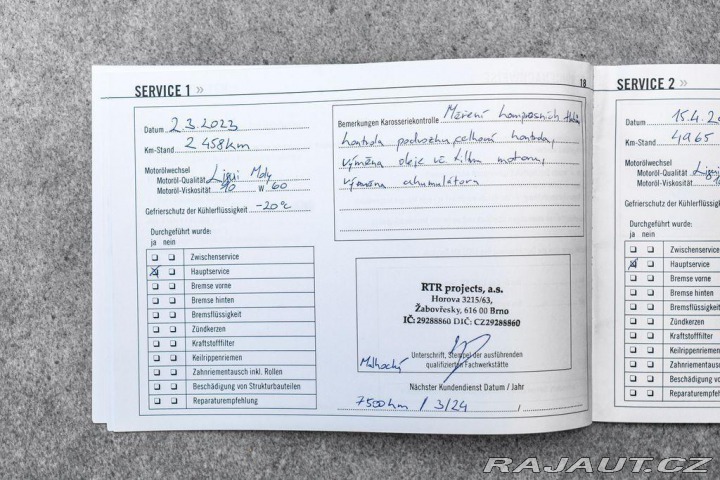 SERVICE 1 »
18
Datum 2.3.2023
Km-Stand 2 458km
Motorölwechsel
Motoröl-Qualität Liqui Moly
Motoröl-Viskosität 10 W 60
Gefrierschutz der Kühlerflüssigkeit -20°C
Durchgeführt wurde:
ja nein
Zwischenservice
Hauptservice
Bremse vorne
Bremse hinten
Bremsflüssigkeit
Zündkerzen
Kraftstofffilter
Keilrippenriemen
Zahnriementausch inkl. Rollen
Beschädigung von Strukturbauteilen
Reparaturempfehlung
Bemerkungen Karosseriekontrolle Měření kompresních
kontrola podvozku, celková kontrola,
výměna oleje vč. filtru motoru,
výměna akumulátoru
RTR projects, a.s.
Horova 3215/63,
Žabovřesky, 616 00 Brno
IČ: 29288860 DIČ: CZ29288860
Unterschrift, Stempel der ausführenden
qualifizierten Fachwerkstätte
Nächster Kundendienst Datum / Jahr
7500km / 3/24
SERVICE 2 »
Datum 15.4.20
Km-Stand 4965
Motorölwechsel
Motoröl-Qualität Liqui
Motoröl-Viskosität
Gefrierschutz der Kühlerflüssigkeit
Durchgeführt wurde:
ja nein
Zwischenservice
Hauptservice
Bremse vorne
Bremse hinten
Bremsflüssigkeit
Zündkerzen
Kraftstofffilter
Keilrippenriemen
Zahnriementausch
Beschädigung von
Reparaturempfehl
RAJAUT.CZ